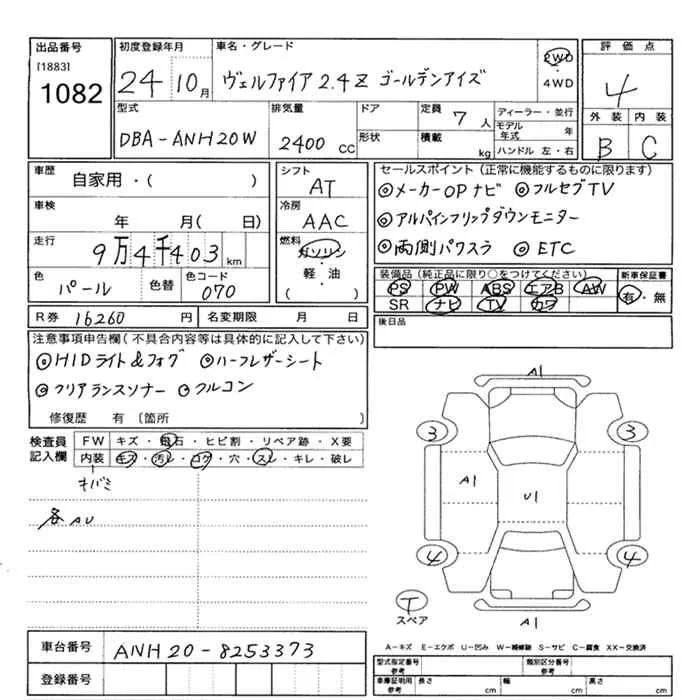 出品番号
[1883]
1082
初度登録年月
24 10月
車名・グレード
ヴェルファイア 2.4Z ゴールデンアイズ
2WD
・
4WD
評価点
4
外装 内装
B C
型式
DBA-ANH20W
排気量
2400 cc
ドア
形状
定員 7 人
積載 kg
ディーラー・並行
モデル年式 年
ハンドル 左・右
車歴
自家用・( )
車検
年 月( 日)
走行
9万4千403 km
色
パール
色替
色コード
070
シフト
AT
冷房
AAC
燃料
ガソリン
軽・油
( )
セールスポイント(正常に機能するものに限ります)
◎メーカーOPナビ ◎フルセグTV
◎アルパインフリップダウンモニター
◎両側パワスラ ◎ETC
装備品(純正品に限り○をつけてください)
PS PW ABS エアB AW
SR ナビ TV カワ
新車保証書
有・無
R券 16260 円
名変期限 月 日
後日品
注意事項申告欄(不具合内容等は具体的に記入して下さい)
◎HIDライト&フォグ ◎ハーフレザーシート
◎クリアランスソナー ◎フルコン
修復歴 有〔箇所 〕
検査員
記入欄
FW キズ・飛石・ヒビ割・リペア跡・X要
内装 キズ・汚レ・コゲ・穴・スレ・キレ・破レ
各AU
A1
3 3
A1
U1
4 4
T
スペア
A1
A-キズ E-エクボ U-凹み W-補修跡 S-サビ C-腐食 XX-交換済
車台番号 ANH20-8253373
登録番号
型式指定番号
参考
類別区分番号
参考
車庫証明用
参考
長さ cm
幅 cm
高さ cm